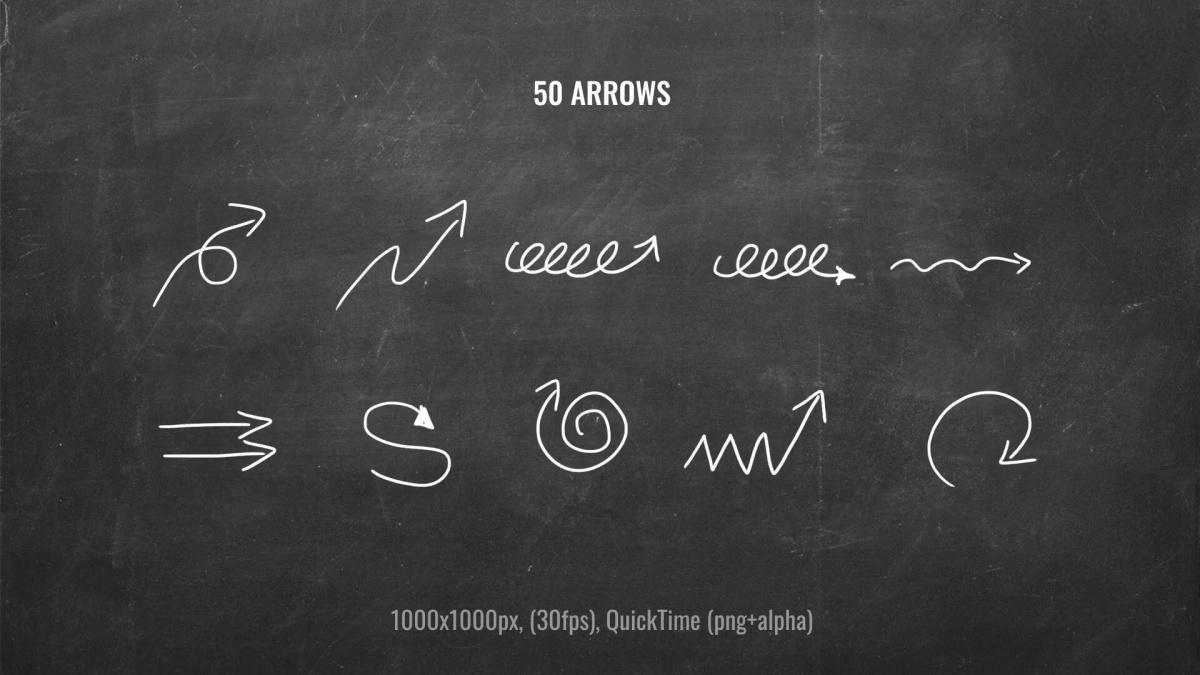 50 ARROWS
1000x1000px, (30fps), QuickTime (png+alpha)